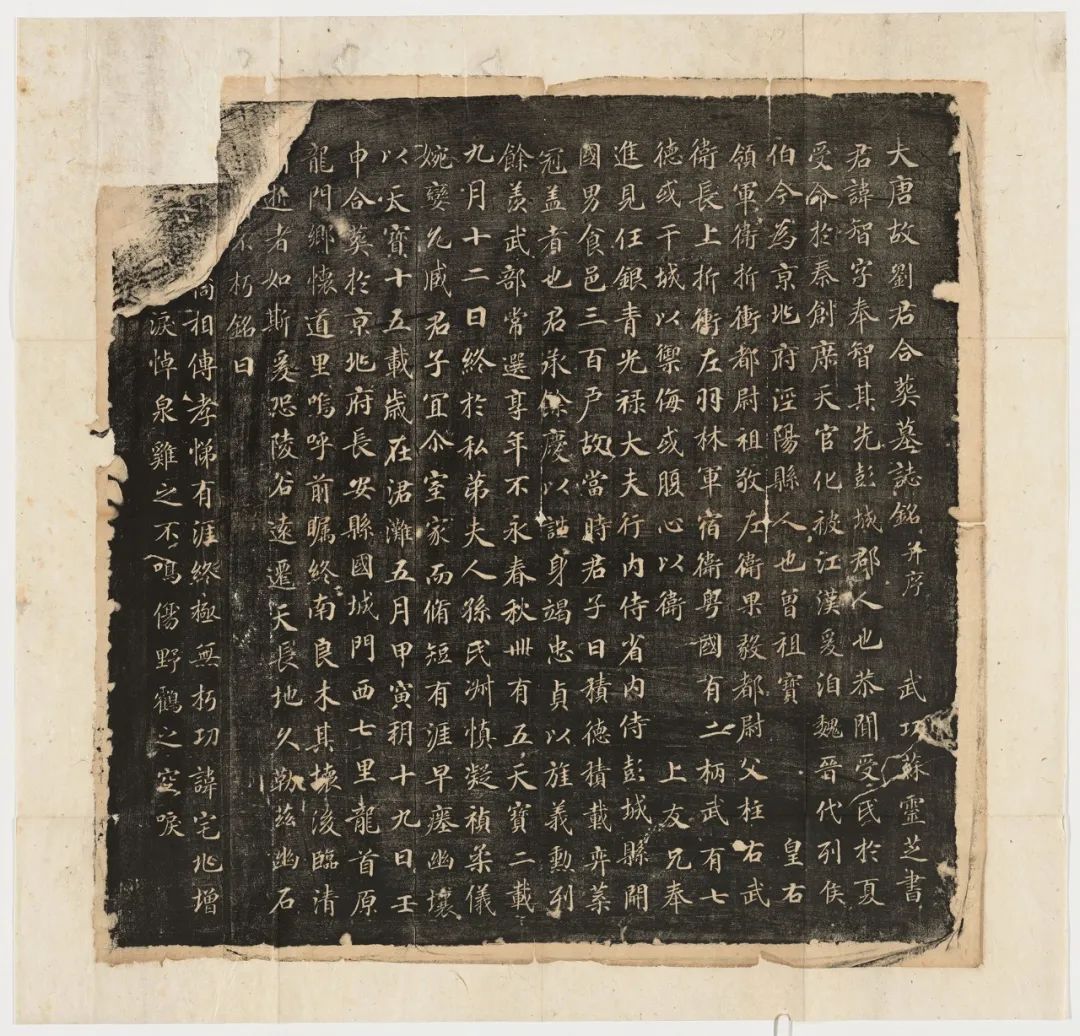 大唐故劉君合葬墓誌銘并序 武功蘇靈芝書
君諱智字奉智其先彭城郡人也恭聞受氏於夏
受命於秦創席天官化被江漢爰洎魏晉代列侯
伯今為京兆府涇陽縣人也曾祖寶 皇右
領軍衛折衝都尉祖敬左衛果毅都尉父柱右武
衛長上折衝左羽林軍宿衛粤國有二柄武有七
德或干城以禦侮或腹心以衛 上友兄奉
進見任銀青光禄大夫行内侍省内侍彭城縣開
國男食邑三百戶故當時君子曰積德積載弈葉
冠盖者也君承餘慶以誼身竭忠貞以旌義勳列
餘羨武部常選享年不永春秋卌有五天寶二載
九月十二日終於私弟夫人孫氏淑慎凝禎柔儀
婉孌允臧君子宜尒室家而脩短有涯早瘞幽壤
以天寶十五載歲在涒灘五月甲寅朔十九日壬
申合葬於京兆府長安縣國城門西七里龍首原
龍門鄉懷道里嗚呼前瞩終南良木其壞後臨清
逝者如斯爰恐陵谷遠遷天長地久勒兹幽石
不朽銘曰
相傳孝悌有涯終極無朽功諱宅兆增
淚悼泉雞之不鳴傷野鶴之空唳